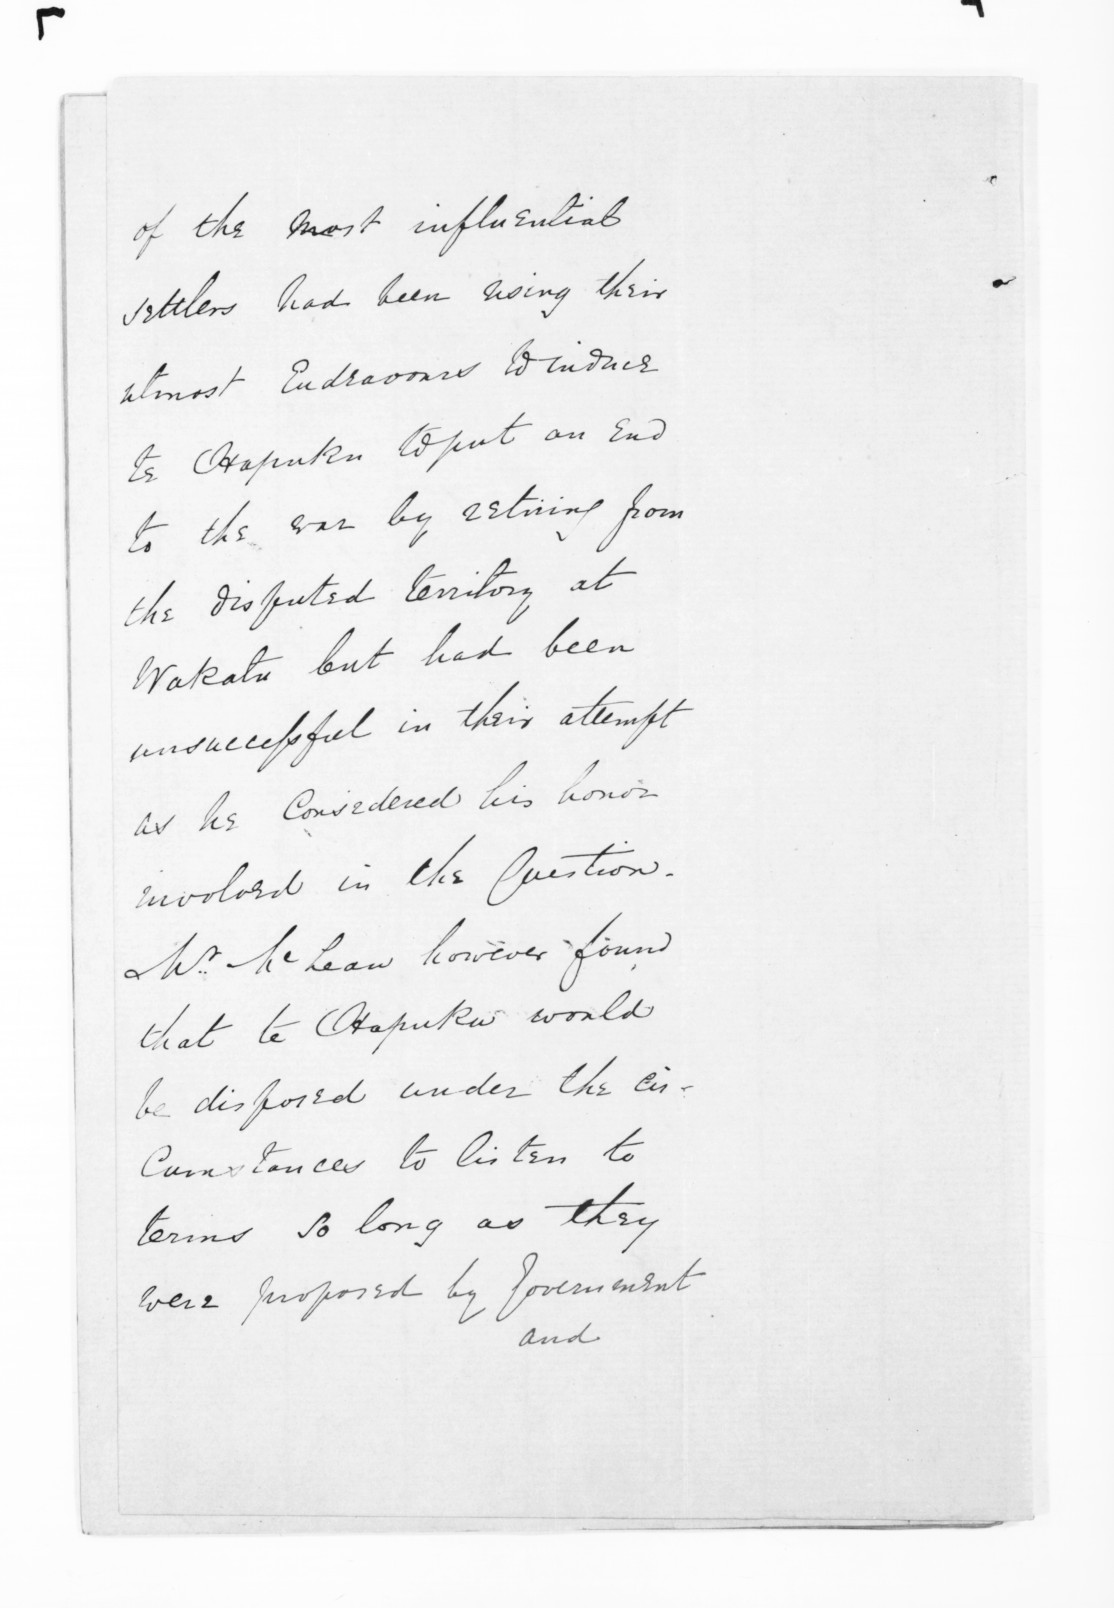 of the most influential
settlers had been using their
utmost Endeavours to induce
te Hapuku to put an End
to the war by retiring from
the disputed territory at
Wakatu but had been
unsuccessful in their attempt
as he Considered his honor
involved in the Question.
Mr. Mc Lean however found
that te Hapuku would
be disposed under the cir-
Cumstances to listen to
terms so long as they
were proposed by Government
and